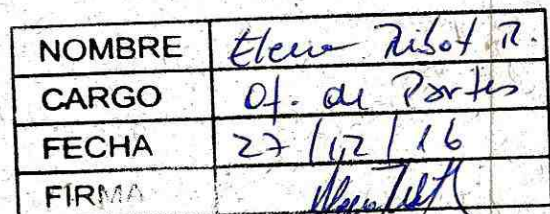 NOMBRE Elena Ribot R.
CARGO Of. de Partes
FECHA 27/12/16
FIRMA